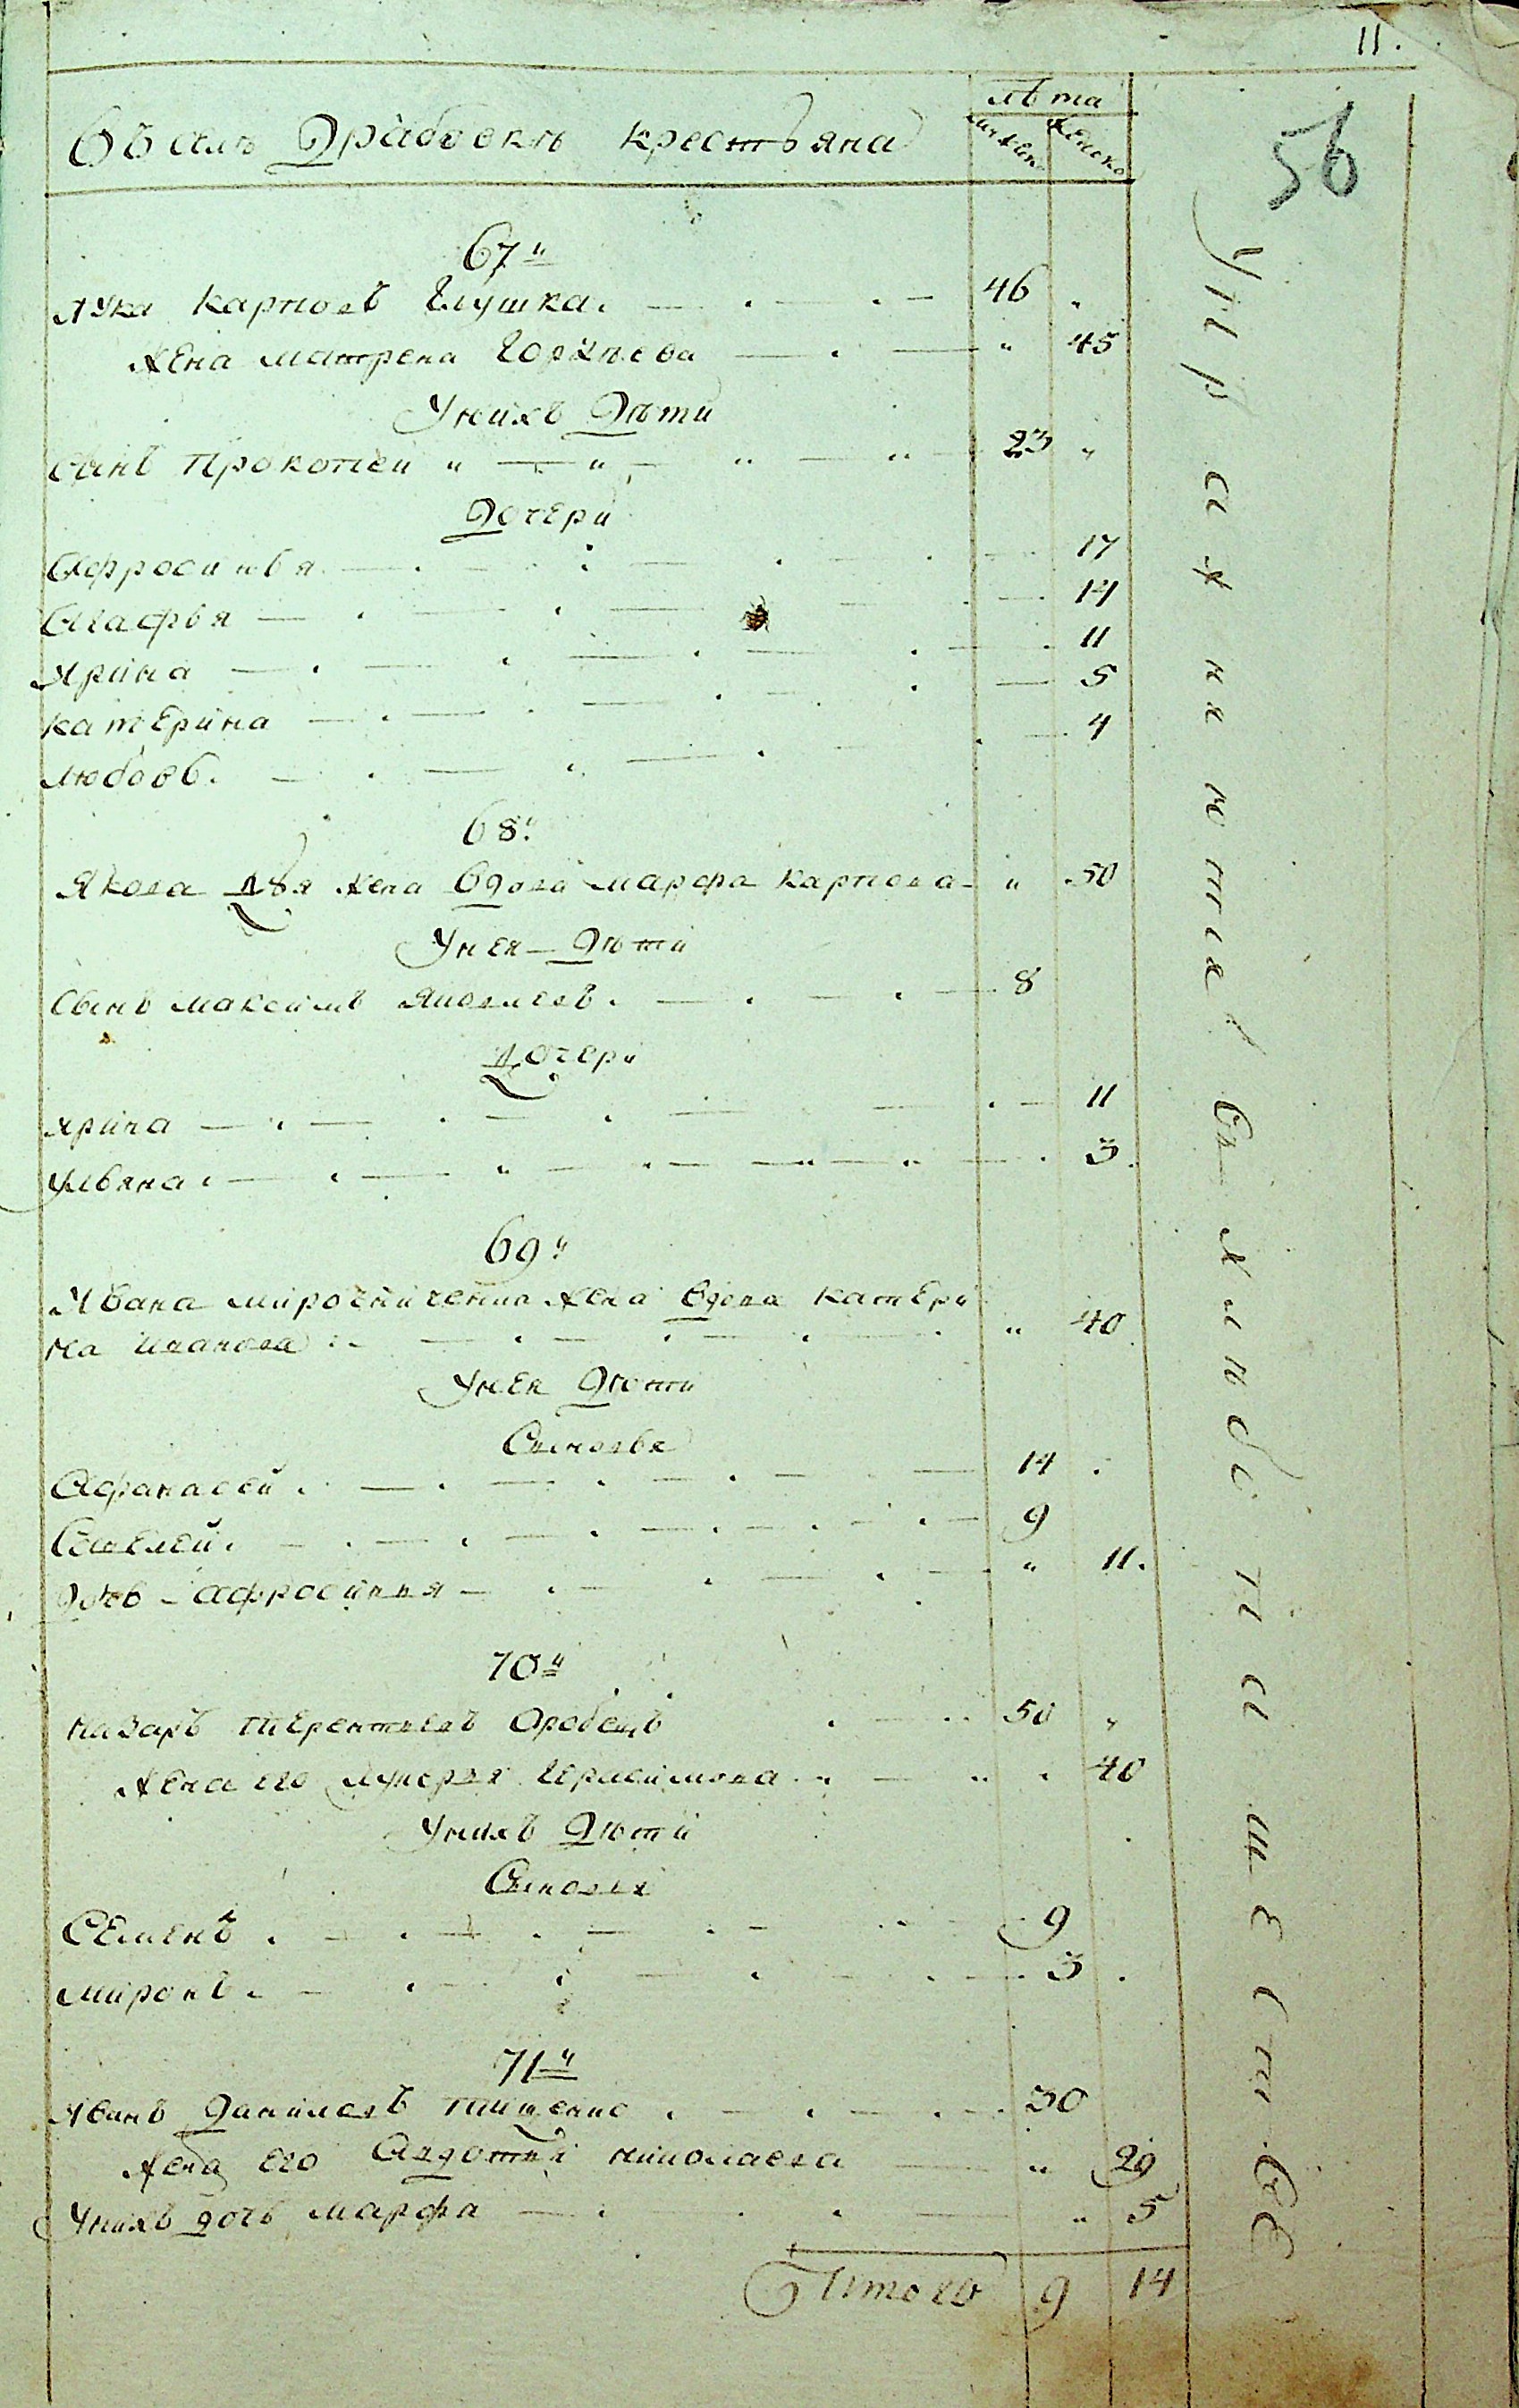 11.
лѣта
мужеско
женско
Въ селѣ Драбовкѣ крестьяна
56
67й
Лука Карповъ Глушка. 46 "
жена Матрена Горѣева " 45
У нихъ дѣти
Сынъ Прокопей 23 "
Дочери
Афросинья 17
Агафья 14
Ярина 11
Катерина 5
Любовь. 4
68й
Якова жена вдова Марфа Карпова " 50
У нея дѣти
Сынъ Максимъ Яковлевъ. 8
Дочери
Ярина 11
Ульяна 3.
69й
Ивана Мирошниченка жена вдова Катери
на Иванова " 40
У нея дѣти
Сыновья
Афанасей 14
Савелей 9
Дочь Афросинья " 11.
70й
Назаръ Терентьевъ 50 "
жена его Лукерья Герасимова 40
У нихъ дѣти
Сыновья
Семенъ 9
Миронъ 3
71й
Иванъ Даниловъ Тищенко 30
жена его Авдотья Николаева " 29
У нихъ дочь Марфа " 5
Итого 9 14